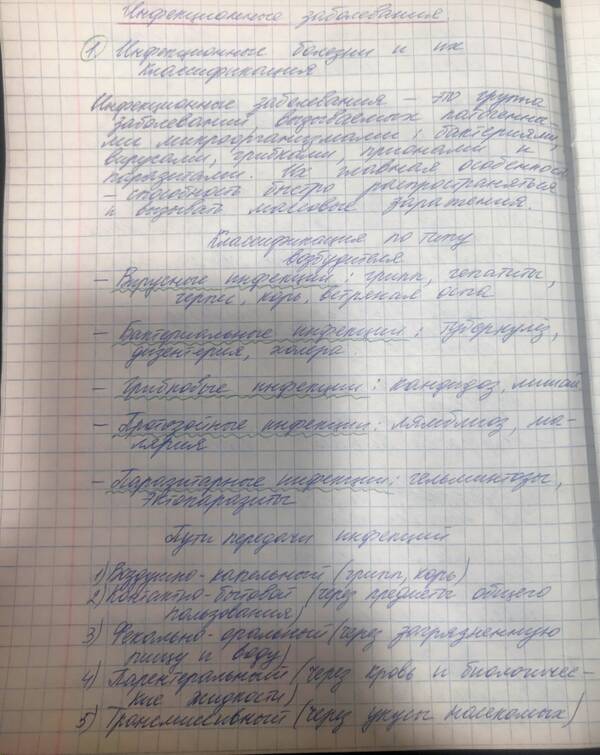 Инфекционные заболевания
1. Инфекционные болезни и их
классификация
Инфекционные заболевания – это группа
заболеваний, вызываемых патогенны-
ми микроорганизмами: бактериями,
вирусами, грибками, прионами и
паразитами. Их главная особенность
– способность быстро распространяться
и вызывать массовые заражения.
Классификация по типу
возбудителя
– Вирусные инфекции: грипп, гепатиты,
герпес, корь, ветряная оспа
– Бактериальные инфекции: туберкулёз,
дизентерия, холера.
– Грибковые инфекции: кандидоз, лишай
– Протозойные инфекции: лямблиоз, ма-
лярия
– Паразитарные инфекции: гельминтозы,
эктопаразиты
Пути передачи инфекций
1) Воздушно-капельный (грипп, корь)
2) Контактно-бытовой (через предметы общего
пользования)
3) Фекально-оральный (через загрязненную
пищу и воду)
4) Парентеральный (через кровь и биологичес-
кие жидкости)
5) Трансмиссивный (через укусы насекомых)